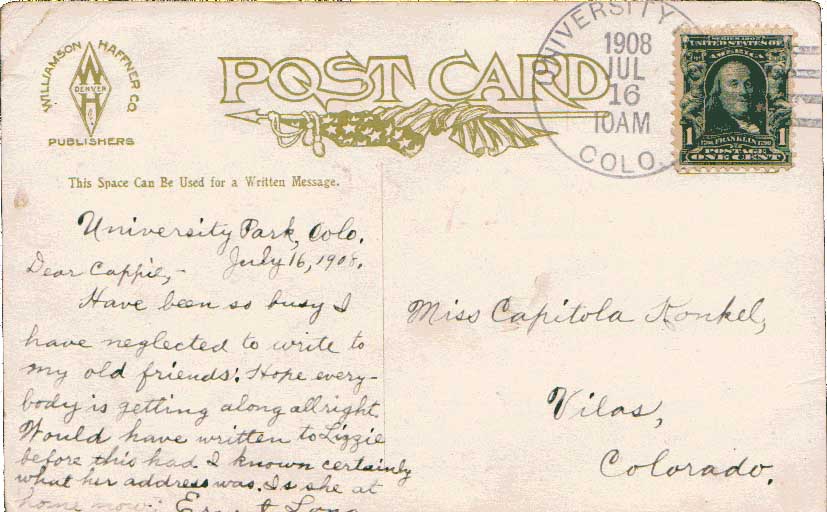 WILLIAMSON HAFFNER CO
W
DENVER
H
PUBLISHERS
POST CARD
This Space Can Be Used for a Written Message.
UNIVERSITY
1908
JUL
16
10AM
COLO.
SERIES 1902
UNITED STATES OF
AMERICA
1 FRANKLIN 1
POSTAGE
ONE CENT
University Park, Colo.
July 16, 1908.
Dear Cappie,-
Have been so busy I
have neglected to write to
my old friends. Hope every-
body is getting along allright.
Would have written to Lizzie
before this had I known certainly
what her address was. Is she at
home now?
Miss Capitola Konkel,
Vilas,
Colorado.